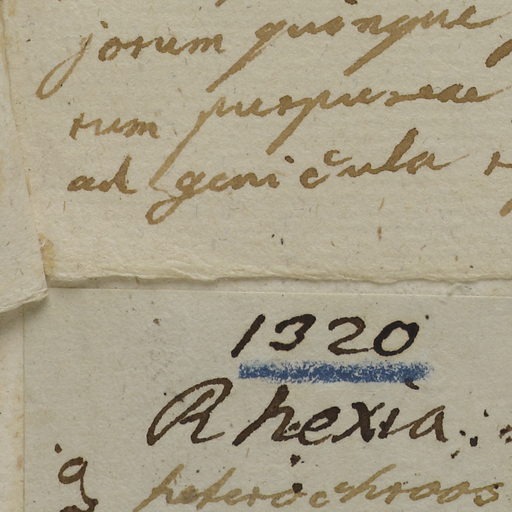 jorum quinque
rum purpureae
ad genicula
1320
Rhexia.
heterochroos